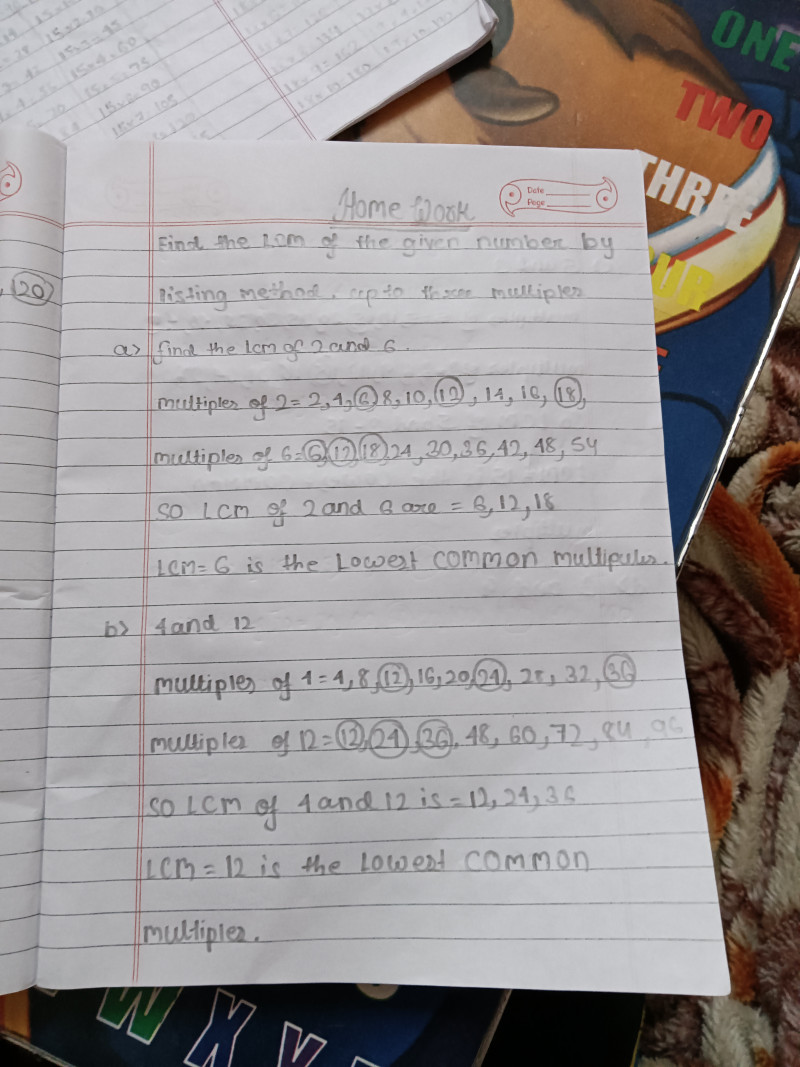 15x3=45
15x4=60
15x5=75
15x6=90
15x7=105
ONE
TWO
THREE
UR
Date
Page
Home Work
20
Find the LCM of the given number by
listing method. up to three multiples
a> find the lcm of 2 and 6.
multiples of 2 = 2, 4, 6 8, 10, 12, 14, 16, 18,
multiples of 6 = 6, 12, 18, 24, 30, 36, 42, 48, 54
SO LCM of 2 and 6 are = 6, 12, 18
LCM = 6 is the Lowest common multipules.
b> 4 and 12
multiples of 4 = 4, 8, 12, 16, 20, 24, 28, 32, 36
multiples of 12 = 12, 24, 36, 48, 60, 72, 84, 96
SO LCM of 4 and 12 is = 12, 24, 36
LCM = 12 is the Lowest common
multiples.
W X Y